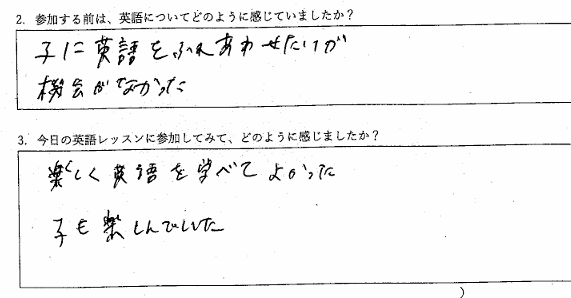 2. 参加する前は、英語についてどのように感じていましたか？
子に英語をふれあわせたいが
機会がなかった
3. 今日の英語レッスンに参加してみて、どのように感じましたか？
楽しく英語を学べてよかった
子も楽しんでいた